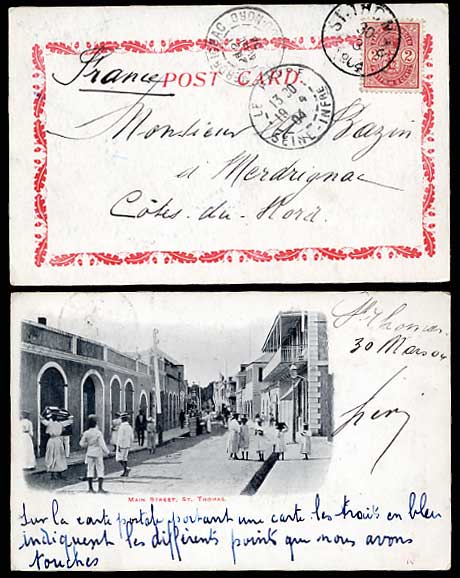 ST. THOMAS
30 3 1904
2
MERDRIGNAC COTES-DU-NORD
LE HAVRE SEINE-INFRE
13 30
19 4
04
France
POST CARD.
Monsieur Bazin
à Merdrignac
Côtes-du-Nord.
St Thomas
30 Mars 04
MAIN STREET, ST. THOMAS.
Sur la carte postale portant une carte les traits en bleu
indiquent les différents points que nous avons
touchés